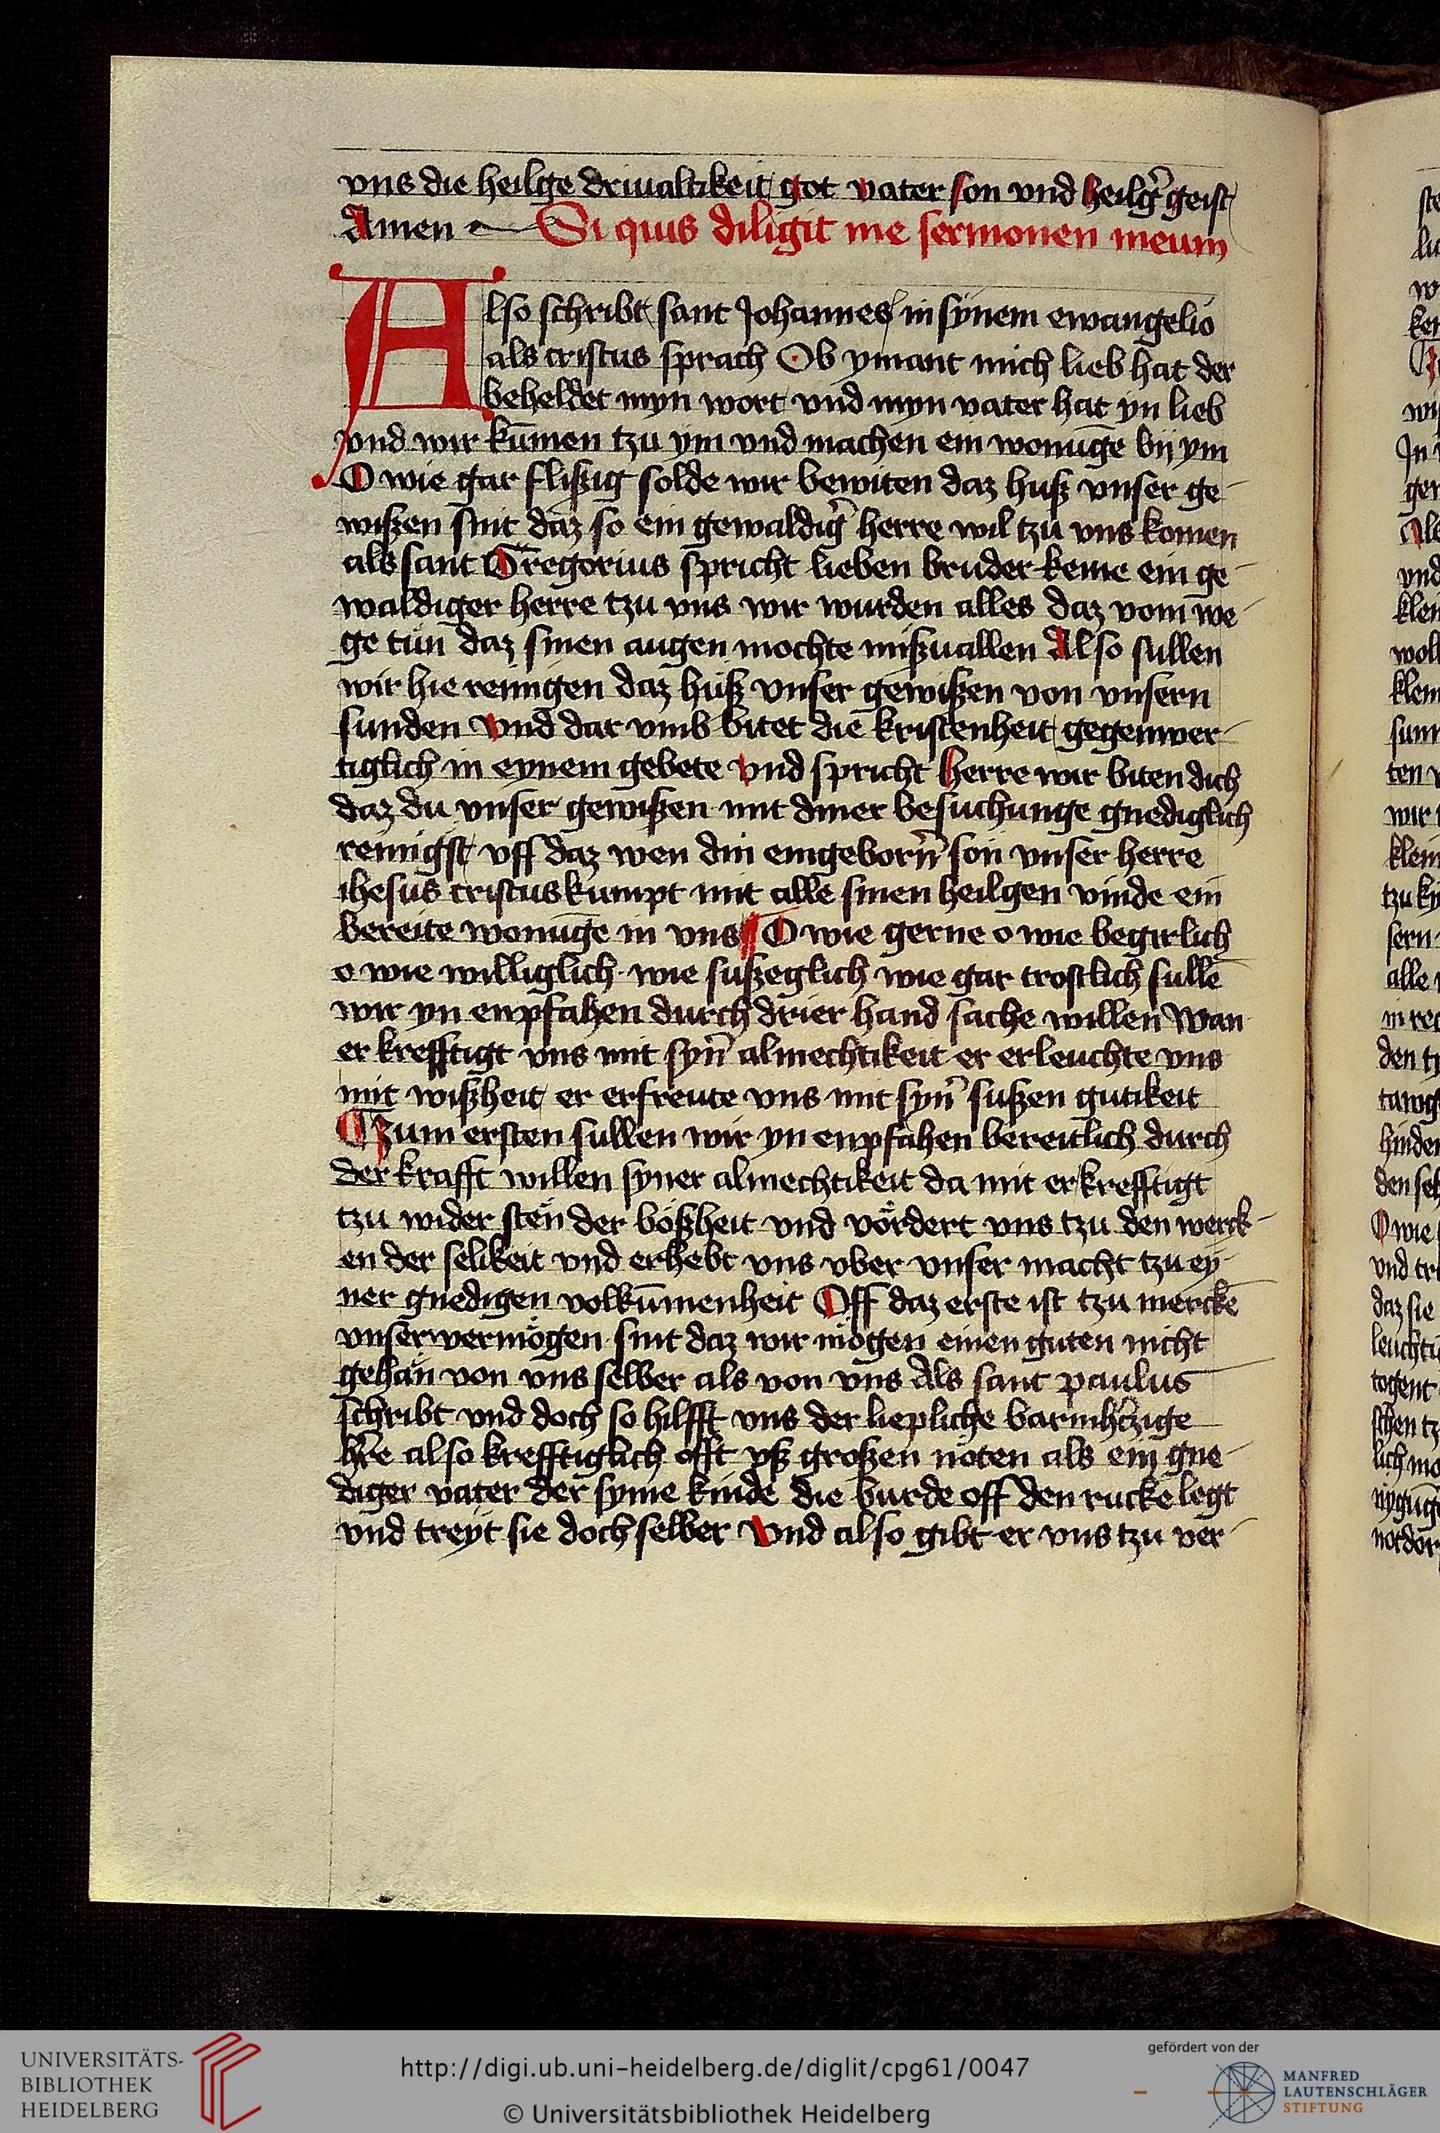 vns die heilge driualtikeit got vater son vnd heilg̉ geist
Amen Si quis diligit me sermonen meum
Also schribt sant Johannes in synem ewangelio
als cristus sprach Ob ymant mich lieb hat der
beheldet myn wort vnd myn vater hat yn lieb
vnd wir kūmen tzu ym vnd machen ein wonūge bij ym
O wie gar fliszig solde wir bewiten daz husz vnser ge-
wiszen sint daz so ein gewaldig̉ herre wil tzu vns komen
als sant Gregorius spricht lieben bruder keme ein ge-
waldiger herre tzu vns wir wurden alles daz vom we-
ge tun daz sinen augen mochte miszuallen Also sullen
wir hie reinigen daz husz vnser gewiszen von vnsern
sunden Vnd dar vmb bitet die kristenheit gegenwer-
tiglich in eynem gebete Vnd spricht herre wir biten dich
daz du vnser gewiszen mit diner besuchunge gnediglich
reinigst vff daz wen din eingeborn̉ son vnser herre
ihesus cristus kumpt mit alle sinen heilgen vinde ein
bereite wonūge in vns O wie gerne o wie begirlich
o wie williglich wie suszeglich wie gar trostlich sulle
wir yn enpfahen durch drier hand sache willen Wan
er krefftigt vns mit syn̉ almechtikeit er erleuchte vns
mit wiszheit er erfreute vns mit syn̉ suszen gutikeit
Czum ersten sullen wir yn enpfahen bereitlich durch
der krafft willen syner almechtikeit da mit er krefftigt
tzu wider sten der boszheit vnd vordert vns tzu den werck-
en der selikeit vnd erhebt vns vber vnser macht tzu ey-
ner gnedigen volkūmenheit Off daz erste ist tzu mercke
vnser vermögen sint daz wir mögen einen guten nicht
gehan von vns selber als von vns Als sant paulus
schribt vnd doch so hilfft vns der liepliche barmh̉tzige
h̉re also krefftiglich offt vsz groszen nöten als ein gne-
diger vater der syme kinde die burde off den rucke legt
vnd treyt sie doch selber Vnd also gibt er vns tzu ver-
UNIVERSITÄTS-
BIBLIOTHEK
HEIDELBERG
http://digi.ub.uni-heidelberg.de/diglit/cpg61/0047
© Universitätsbibliothek Heidelberg
gefördert von der
MANFRED
LAUTENSCHLÄGER
STIFTUNG